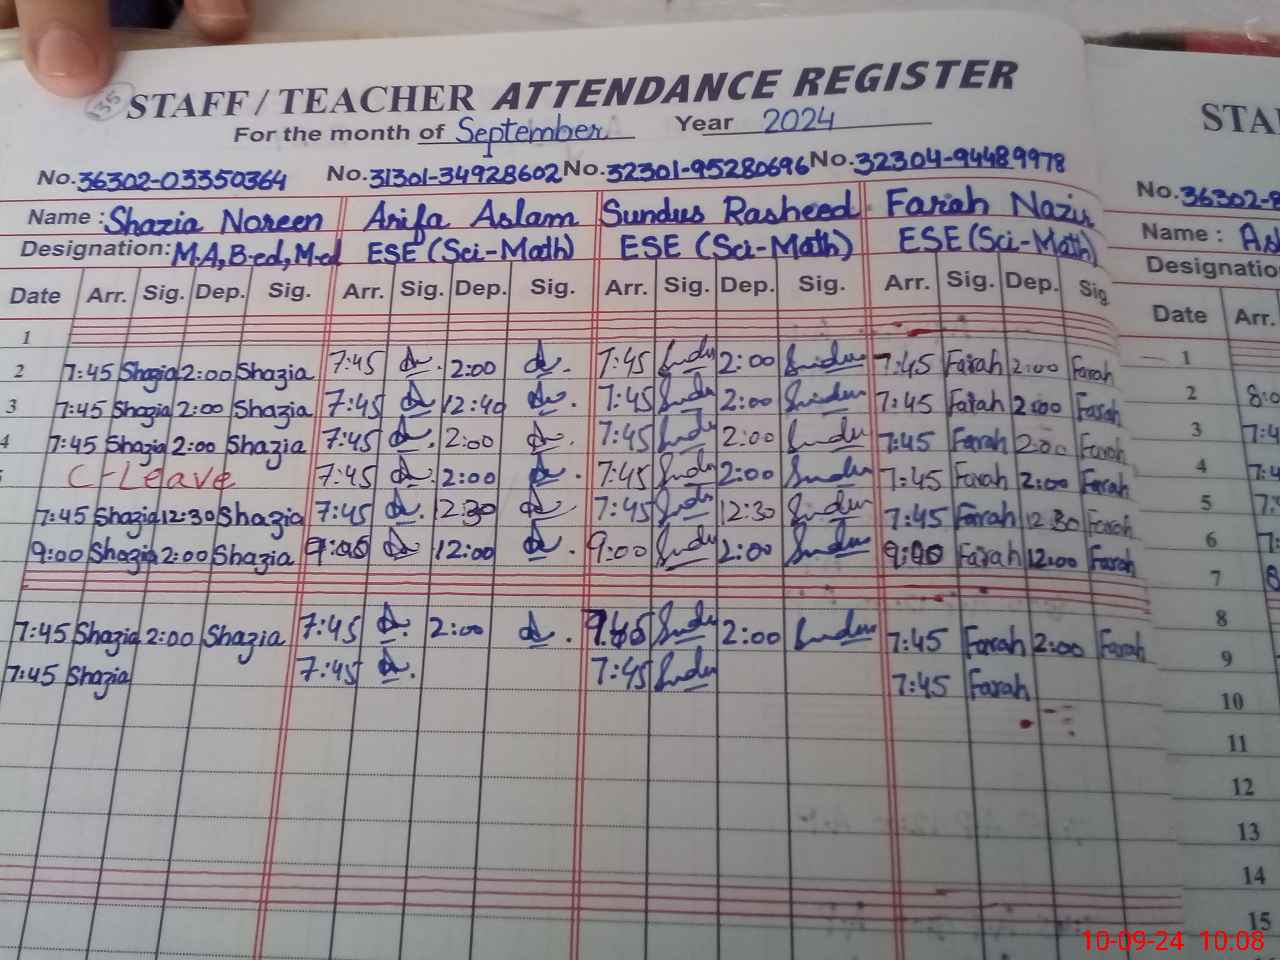 135
STAFF / TEACHER ATTENDANCE REGISTER
For the month of September Year 2024
No. 36302-03350364 No. 31301-34928602 No. 32301-95280696 No. 32304-94489978
Name : Shazia Noreen Arifa Aslam Sundus Rasheed Farah Nazir
Designation: M.A, B-ed, M-ed ESE (Sci-Math) ESE (Sci-Math) ESE (Sci-Math)
Date Arr. Sig. Dep. Sig. Arr. Sig. Dep. Sig. Arr. Sig. Dep. Sig. Arr. Sig. Dep. Sig
1
2 7:45 Shazia 2:00 Shazia 7:45 2:00 7:45 Sundus 2:00 Sundus 7:45 Farah 2:00 Farah
3 7:45 Shazia 2:00 Shazia 7:45 12:40 7:45 Sundus 2:00 Sundus 7:45 Farah 2:00 Farah
4 7:45 Shazia 2:00 Shazia 7:45 2:00 7:45 Sundus 2:00 Sundus 7:45 Farah 2:00 Farah
C-Leave 7:45 2:00 7:45 Sundus 2:00 Sundus 7:45 Farah 2:00 Farah
7:45 Shazia 12:30 Shazia 7:45 12:30 7:45 Sundus 12:30 Sundus 7:45 Farah 12:30 Farah
9:00 Shazia 2:00 Shazia 9:00 12:00 9:00 Sundus 2:00 Sundus 9:00 Farah 12:00 Farah
7:45 Shazia 2:00 Shazia 7:45 2:00 7:45 Sundus 2:00 Sundus 7:45 Farah 2:00 Farah
7:45 Shazia 7:45 7:45 Sundus 7:45 Farah
STA
No. 36302-
Name : As
Designatio
Date Arr.
1
2 8:0
3 7:4
4 7:4
5 7:
6 7:
7 8
8
9
10
11
12
13
14
15
10-09-24 10.08